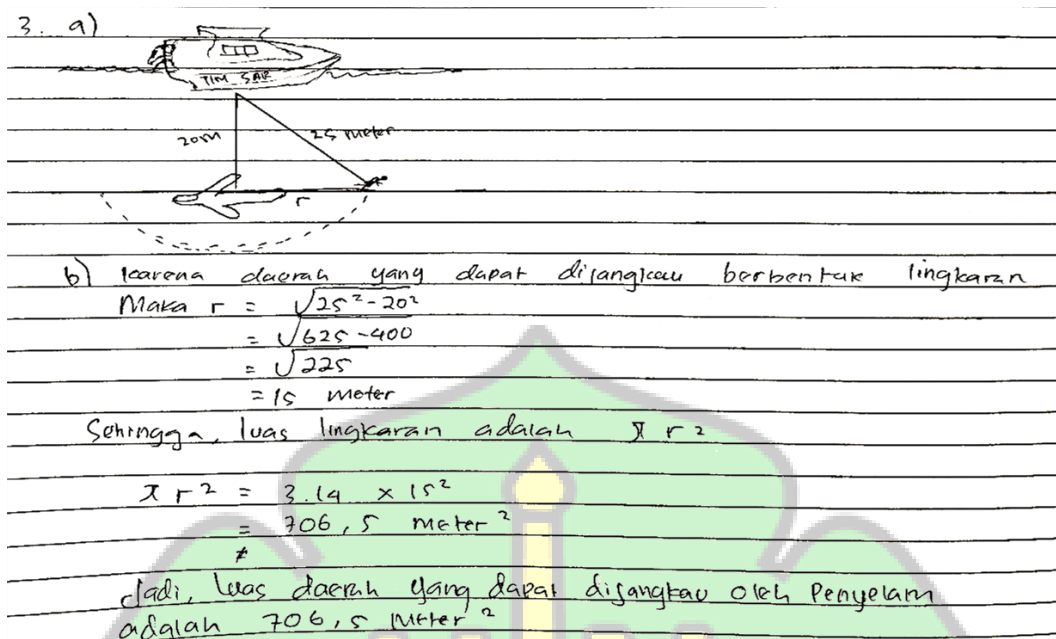 3. a)
TIM SAR
20m 25 meter
r
b) karena daerah yang dapat dijangkau berbentuk lingkaran
Maka r = √25² - 20²
= √625 - 400
= √225
= 15 meter
Sehingga, luas lingkaran adalah π r²
π r² = 3.14 × 15²
= 706,5 meter²
Jadi, luas daerah yang dapat dijangkau oleh Penyelam
adalah 706,5 meter²